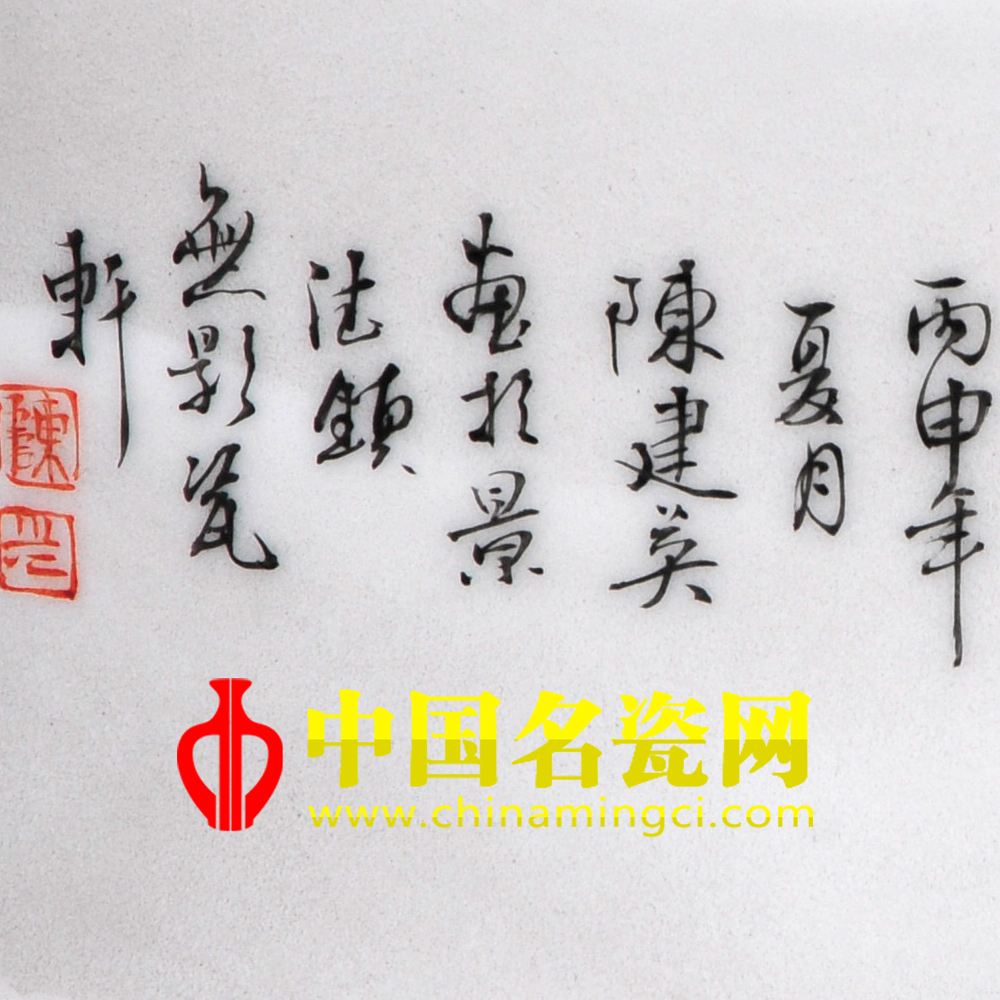 丙申年
夏月
陳建英
畫於景
德鎮
無影瓷
軒
陳
中国名瓷网
www.chinamingci.com